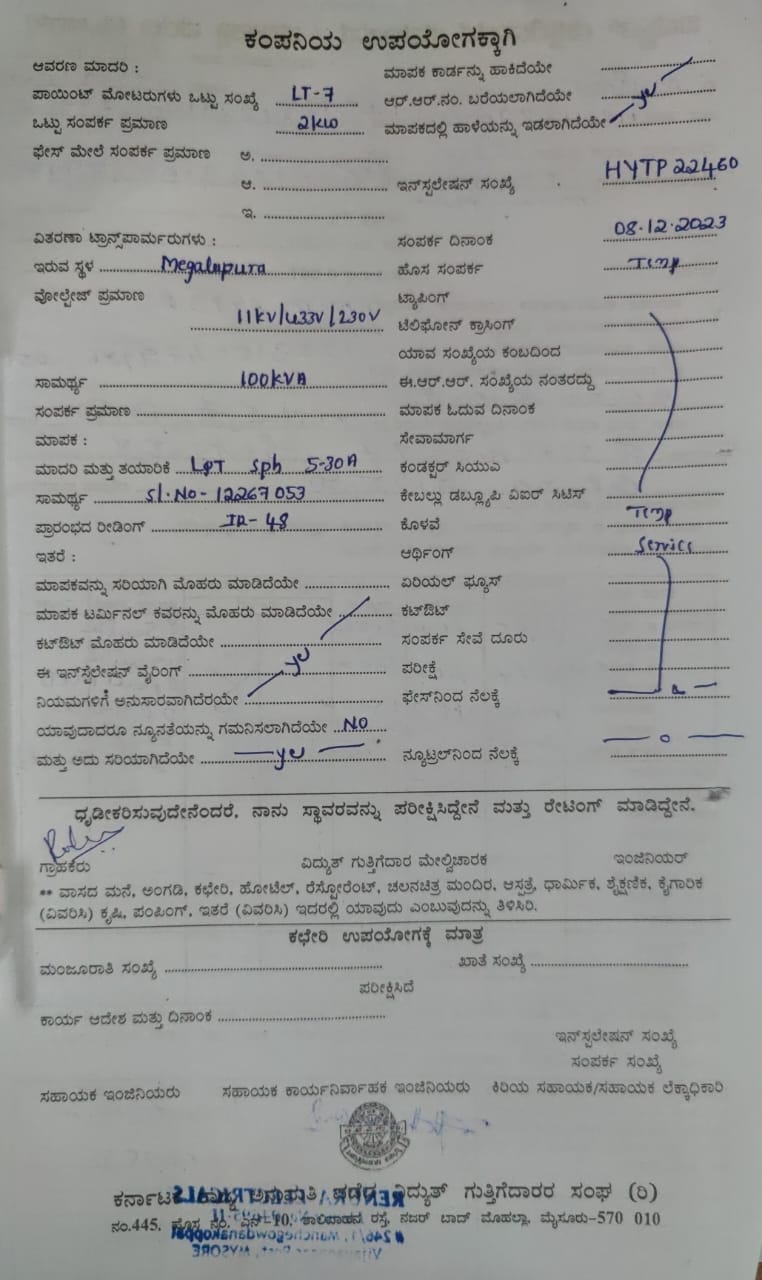 ಕಂಪನಿಯ ಉಪಯೋಗಕ್ಕಾಗಿ
ಆವರಣ ಮಾದರಿ : ಮಾಪಕ ಕಾರ್ಡನ್ನು ಹಾಕಿದೆಯೇ
ಪಾಯಿಂಟ್ ಮೋಟರುಗಳು ಒಟ್ಟು ಸಂಖ್ಯೆ LT-7 ಆರ್.ಆರ್.ನಂ. ಬರೆಯಲಾಗಿದೆಯೇ yes
ಒಟ್ಟು ಸಂಪರ್ಕ ಪ್ರಮಾಣ 2KW ಮಾಪಕದಲ್ಲಿ ಹಾಳೆಯನ್ನು ಇಡಲಾಗಿದೆಯೇ
ಫೇಸ್ ಮೇಲೆ ಸಂಪರ್ಕ ಪ್ರಮಾಣ ಅ.
ಆ. ಇನ್‌ಸ್ಟಲೇಷನ್ ಸಂಖ್ಯೆ HYTP22460
ಇ.
ವಿತರಣಾ ಟ್ರಾನ್ಸ್‌ಪಾರ್ಮರುಗಳು : ಸಂಪರ್ಕ ದಿನಾಂಕ 08.12.2023
ಇರುವ ಸ್ಥಳ Megalapura ಹೊಸ ಸಂಪರ್ಕ Temp
ವೋಲ್ಟೇಜ್ ಪ್ರಮಾಣ ಟ್ಯಾಪಿಂಗ್
11KV/433V/230V ಟೆಲಿಫೋನ್ ಕ್ರಾಸಿಂಗ್
ಯಾವ ಸಂಖ್ಯೆಯ ಕಂಬದಿಂದ
ಸಾಮರ್ಥ್ಯ 100KVA ಈ.ಆರ್.ಆರ್. ಸಂಖ್ಯೆಯ ನಂತರದ್ದು
ಸಂಪರ್ಕ ಪ್ರಮಾಣ ಮಾಪಕ ಓದುವ ದಿನಾಂಕ
ಮಾಪಕ : ಸೇವಾಮಾರ್ಗ
ಮಾದರಿ ಮತ್ತು ತಯಾರಿಕೆ L&T Sph 5-30A ಕಂಡಕ್ಟರ್ ಸಿಯುಎ
ಸಾಮರ್ಥ್ಯ Sl.No-12267053 ಕೇಬಲ್ಲು ಡಬ್ಲ್ಯೂಪಿ ವಿಐರ್ ಸಿಟಿಸ್
ಪ್ರಾರಂಭದ ರೀಡಿಂಗ್ IR-48 ಕೊಳವೆ Temp
ಇತರೆ : ಆರ್ಥಿಂಗ್ Service
ಮಾಪಕವನ್ನು ಸರಿಯಾಗಿ ಮೊಹರು ಮಾಡಿದೆಯೇ ಏರಿಯಲ್ ಫ್ಯೂಸ್
ಮಾಪಕ ಟರ್ಮಿನಲ್ ಕವರನ್ನು ಮೊಹರು ಮಾಡಿದೆಯೇ ಕಟ್‌ಔಟ್
ಕಟ್‌ಔಟ್ ಮೊಹರು ಮಾಡಿದೆಯೇ ಸಂಪರ್ಕ ಸೇವೆ ದೂರು
ಈ ಇನ್‌ಸ್ಟೆಲೇಷನ್ ವೈರಿಂಗ್ yes ಪರೀಕ್ಷೆ
ನಿಯಮಗಳಿಗೆ ಅನುಸಾರವಾಗಿದೆರಯೇ ಫೇಸ್‌ನಿಂದ ನೆಲಕ್ಕೆ
ಯಾವುದಾದರೂ ನ್ಯೂನತೆಯನ್ನು ಗಮನಿಸಲಾಗಿದೆಯೇ NO
ಮತ್ತು ಅದು ಸರಿಯಾಗಿದೆಯೇ yes ನ್ಯೂಟ್ರಲ್‌ನಿಂದ ನೆಲಕ್ಕೆ — 0 —
ಧೃಡೀಕರಿಸುವುದೇನೆಂದರೆ, ನಾನು ಸ್ಥಾವರವನ್ನು ಪರೀಕ್ಷಿಸಿದ್ದೇನೆ ಮತ್ತು ರೇಟಿಂಗ್ ಮಾಡಿದ್ದೇನೆ.
ಗ್ರಾಹಕರು ವಿದ್ಯುತ್ ಗುತ್ತಿಗೆದಾರ ಮೇಲ್ವಿಚಾರಕ ಇಂಜಿನಿಯರ್
** ವಾಸದ ಮನೆ, ಅಂಗಡಿ, ಕಛೇರಿ, ಹೋಟೆಲ್, ರೆಸ್ಟೋರೆಂಟ್, ಚಲನಚಿತ್ರ ಮಂದಿರ, ಆಸ್ಪತ್ರೆ, ಧಾರ್ಮಿಕ, ಶೈಕ್ಷಣಿಕ, ಕೈಗಾರಿಕ
(ವಿವರಿಸಿ) ಕೃಷಿ, ಪಂಪಿಂಗ್, ಇತರೆ (ವಿವರಿಸಿ) ಇದರಲ್ಲಿ ಯಾವುದು ಎಂಬುವುದನ್ನು ತಿಳಿಸಿರಿ.
ಕಛೇರಿ ಉಪಯೋಗಕ್ಕೆ ಮಾತ್ರ
ಮಂಜೂರಾತಿ ಸಂಖ್ಯೆ ಖಾತೆ ಸಂಖ್ಯೆ
ಪರೀಕ್ಷಿಸಿದೆ
ಕಾರ್ಯ ಆದೇಶ ಮತ್ತು ದಿನಾಂಕ
ಇನ್‌ಸ್ಪಲೇಷನ್ ಸಂಖ್ಯೆ
ಸಂಪರ್ಕ ಸಂಖ್ಯೆ
ಸಹಾಯಕ ಇಂಜಿನಿಯರು ಸಹಾಯಕ ಕಾರ್ಯನಿರ್ವಾಹಕ ಇಂಜಿನಿಯರು ಕಿರಿಯ ಸಹಾಯಕ/ಸಹಾಯಕ ಲೆಕ್ಕಾಧಿಕಾರಿ
ಕರ್ನಾಟಕ ರಾಜ್ಯ ಅನುಮತಿ ಪಡೆದ ವಿದ್ಯುತ್ ಗುತ್ತಿಗೆದಾರರ ಸಂಘ (ರಿ)
ನಂ.445, ಹೊಸ ನಂ. ಎನ್-10, ರಸ್ತೆ, ನಜರ್ ಬಾದ್ ಮೊಹಲ್ಲಾ, ಮೈಸೂರು-570 010